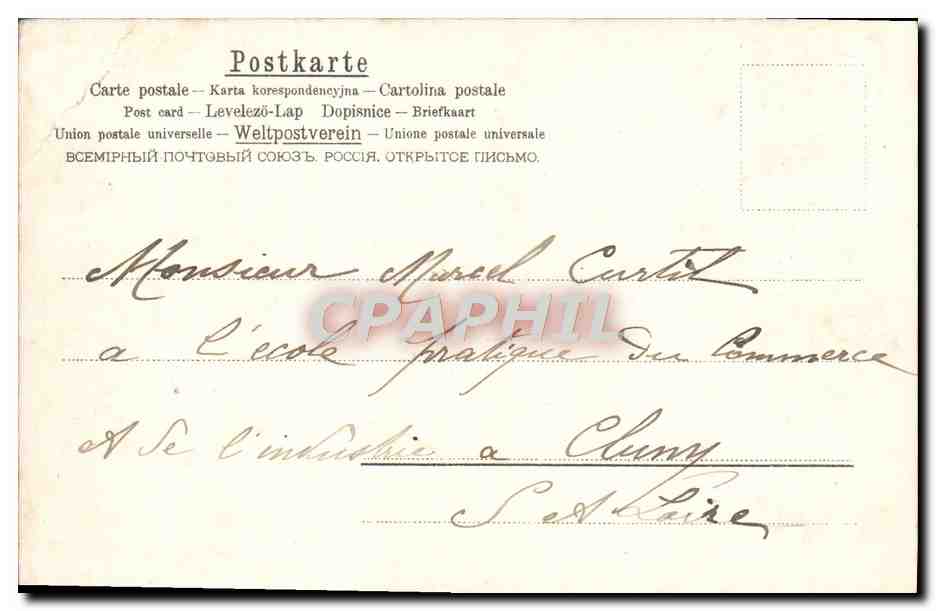 Postkarte
Carte postale — Karta korespondencyjna — Cartolina postale
Post card — Levelezö-Lap Dopisnice — Briefkaart
Union postale universelle — Weltpostverein — Unione postale universale
ВСЕМІРНЫЙ ПОЧТОВЫЙ СОЮЗЪ. РОССІЯ. ОТКРЫТОЕ ПИСЬМО.
Monsieur Marcel Curtil
CPAPHIL
a l'école pratique du Commerce
& de l'industrie a Cluny
S & Loire